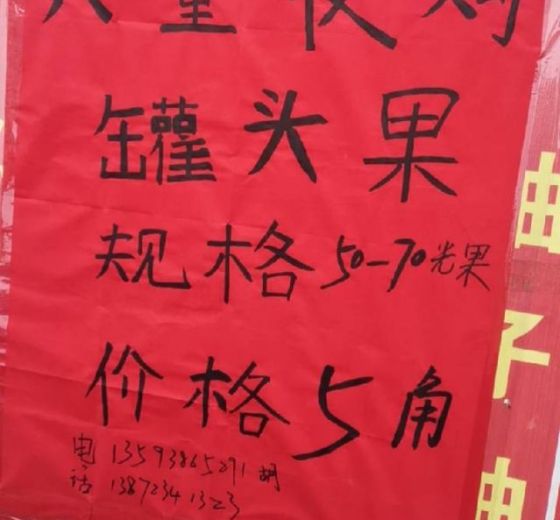 大量收购
罐头果
规格50-70光果
价格5角
电话 13593865291 胡
1387234 1323
由
子
由